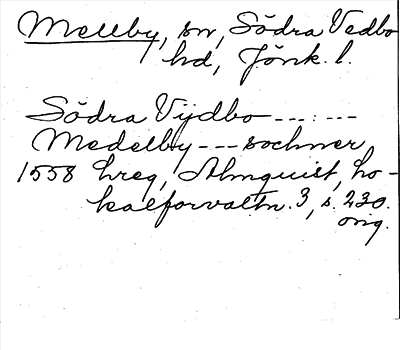 Mellby, sn, Södra Vedbo
hd, Jönk. l.
Södra Vijdbo ---:---
Medelby --- sochner
1558 hreg, Almquist, Lo-
kalförvaltn. 3, s. 230.
orig.